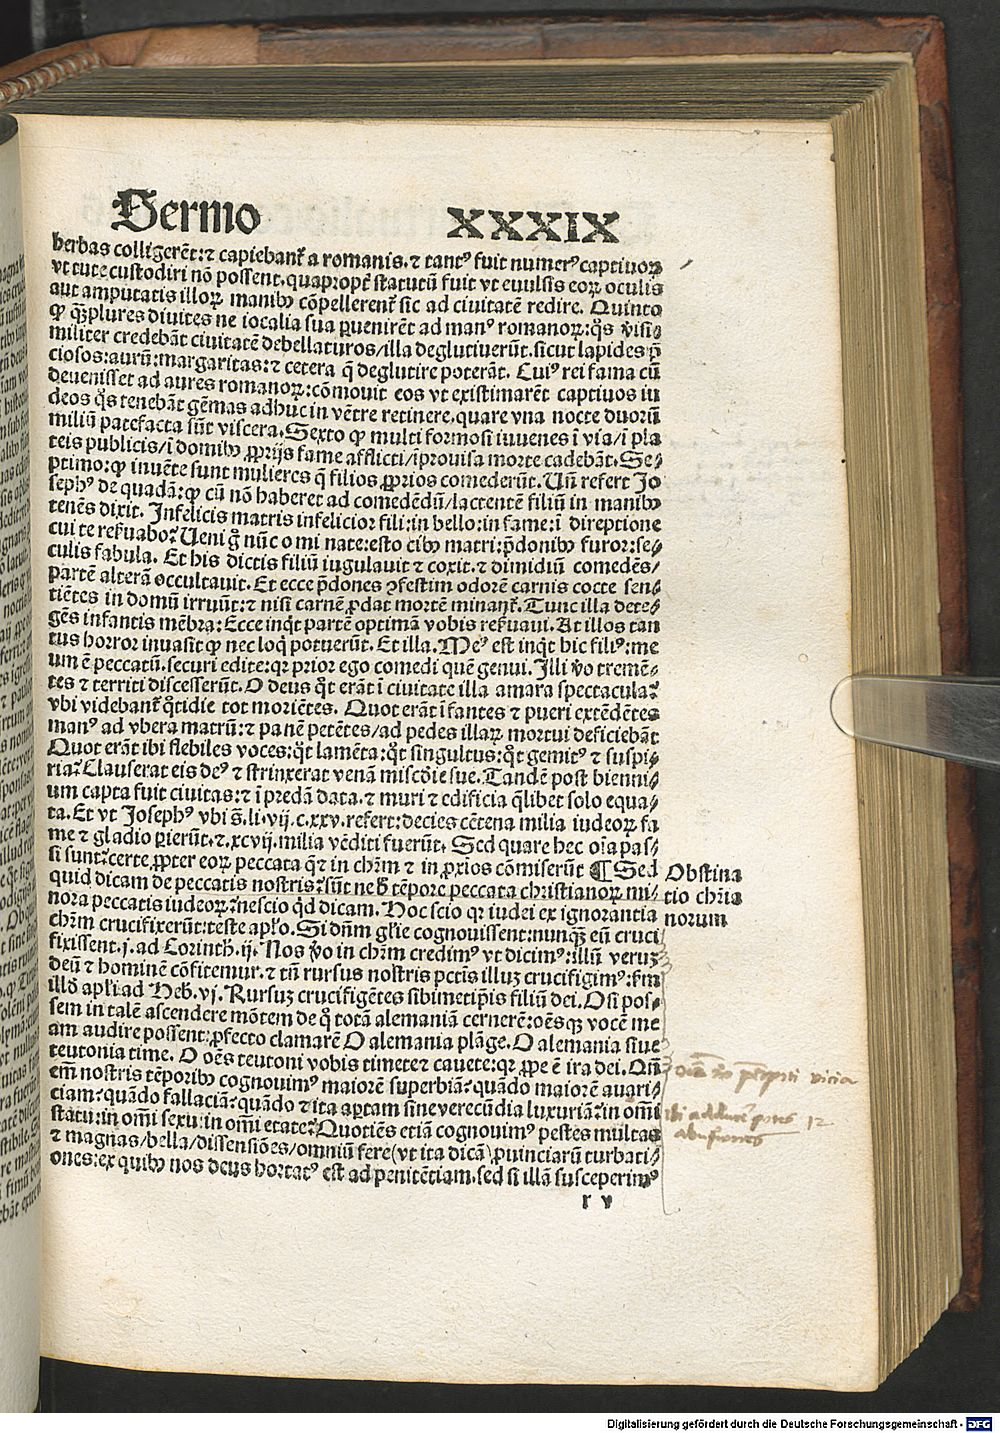 Sermo XXXIX
herbas colligerēt: ⁊ capiebant̄ a romanis. ⁊ tantꝰ fuit numerꝰ captiuoꝝ
vt tute custodiri nō possent. quapropt̄ statutū fuit vt euulsis eoꝝ oculis
aut amputatis illoꝝ manibꝰ cōpellerent̄ sic ad ciuitatē redire. Quinto
ꝙ q̄ꝫplures diuites ne iocalia sua ꝑuenirēt ad manꝰ romanoꝝ: q̄s visi⸗
militer credebāt ciuitatē debellaturos/illa deglutiuerūt. sicut lapides p̄
ciosos: aurū: margaritas: ⁊ cetera q̄ deglutire poterāt. Cuiꝰ rei fama cū
deuenisset ad aures romanoꝝ: cōmouit eos vt existimarēt captiuos iu
deos q̄s tenebāt gēmas adhuc in vētre retinere. quare vna nocte duorū
miliū patefacta sūt viscera. Sexto ꝙ multi formosi iuuenes ī via/ī pla
teis publicis/ī domibꝰ ꝓprijs fame afflicti/īprouisa morte cadebāt. Se⸗
ptimo: ꝙ inuēte sunt mulieres q̄ filios ꝓprios comederūt. Uñ refert Jo
sephꝰ de quadā: ꝙ cū nō haberet ad comedēdū/lactentē filiū in manibꝰ
tenēs dixit. Infelicis matris infelicior fili: in bello: in fame: ī direptione
cui te reẜuabo? Ueni g̊ nūc o mi nate: esto cibꝰ matri: p̄donibꝰ furor: se⸗
culis fabula. Et his dictis filiū iugulauit ⁊ coxit. ⁊ dimidiū comedēs/
partē alterā occultauit. Et ecce p̄dones ꝯfestim odorē carnis cocte sen⸗
tiētes in domū irruūt: ⁊ nisi carnē ꝓdat mortē minant̄. Tunc illa dete⸗
gēs infantis mēbra: Ecce inq̇t partē optimā vobis reẜuaui. At illos tan
tus horror inuasit ꝙ nec loq̇ potuerūt. Et illa. Meꝰ est inq̇t hic filiꝰ: me
um ē peccatū. securi edite: qꝛ prior ego comedi quē genui. Illi v̊o tremē⸗
tes ⁊ territi discesserūt. O deus q̊t erāt ī ciuitate illa amara spectacula?
vbi videbant̄ q̊tidie tot moriētes. Quot erāt īfantes ⁊ pueri extēdētes
manꝰ ad vbera matrū: ⁊ panē petētes/ad pedes illaꝝ mortui deficiebāt
Quot erāt ibi flebiles voces: q̊t lamēta: q̊t singultus: q̊t gemitꝰ ⁊ suspi⸗
ria? Clauserat eis deꝰ ⁊ strinxerat venā misc̄die sue. Tandē post bienni⸗
um capta fuit ciuitas: ⁊ ī predā data. ⁊ muri ⁊ edificia q̄libet solo equa⸗
ta. Et vt Josephꝰ vbi s̄. li. vij. c. xxv. refert: decies cētena milia iudeoꝝ fa
me ⁊ gladio ꝑierūt. ⁊ xcvij. milia vēditi fuerūt. Sed quare hec oīa pas⸗
si sunt? certe ꝓpter eoꝝ peccata q̄ ⁊ in chr̄m ⁊ in ꝓxīos cōmiserūt ¶ Sed
Obstina
tio chr̄ia
norum
quid dicam de peccatis nostris? sūt ne h̄ tēpore peccata christianoꝝ mi⸗
nora peccatis iudeoꝝ? nescio q̇d dicam. Hoc scio qꝛ iudei ex ignorantia
chr̄m crucifixerūt: teste ap̄lo. Si dn̄m gl̄ie cognouissent: nunqꝫ eū cruci
fixissent. j. ad Corinth. ij. Nos v̊o in chr̄m credimꝰ vt dicimꝰ: illū veruꝫ
deū ⁊ hominē cōfitemur. ⁊ tn̄ rursus nostris pctīs illuꝫ crucifigimꝰ: ẜm
illd̓ apl̄i ad Heb. vj. Rursuꝫ crucifigētes sibimetip̄is filiū dei. O si pos⸗
sem in talē ascendere mōtem de q̊ totā alemaniā cernerē: oēsqꝫ vocē me
am audire possent: ꝓfecto clamarē O alemania plāge. O alemania siue
teutonia time. O oēs teutoni vobis timete ⁊ cauete: qꝛ ꝓpe ē ira dei. Qn̄
em̄ nostris tēporibꝰ cognouimꝰ maiorē superbiā? quādo maiorē auari⸗
ciam? quādo fallaciā? quādo ⁊ ita aꝑtam sine verecūdia luxuriā? in om̄i
statu: in om̄i sexu: in om̄i etate? Quotiēs etiā cognouimꝰ pestes multas
⁊ magnas/bella/dissensiōes/omniū fere (vt ita dicā) ꝓuinciarū turbati⸗
ones: ex quibꝰ nos deus hortatꝰ est ad penitētiam. sed si illā susceperimꝰ
r v
vicia
ibi 12
abusiones
Digitalisierung gefördert durch die Deutsche Forschungsgemeinschaft - DFG